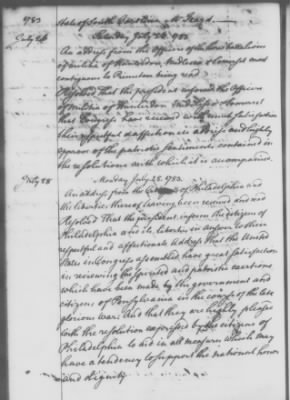 1783
State of South Carolina Mr Izard
July 26
Saturday July 26. 1783
An address from the Officers of the three battalions
of militia of Hunterdon, Middlesex & Somerset most
contiguous to Princeton being read
Resolved that the president inform the Officers
of Militia of Hunterdon Middlesex & Somerset
that Congress have received with much satisfaction
their affectionate address and highly
approve of the patriotic sentiments contained in
the resolutions with which it is accompanied.
July 28
Monday July 28. 1783.
An address from the Citizens of Philadelphia and
the liberties thereof having been received and read
Resolved That the president inform the citizens of
Philadelphia and its liberties in answer to their
respectful and affectionate address That the United
States in Congress assembled have great satisfaction
in reviewing the spirited and patriotic exertions
which have been made by the government and
citizens of Pensylvania in the course of the late
glorious war: And that they are highly pleased
with the resolution expressed by the citizens of
Philadelphia to aid in all measures which may
have a tendency to support the national honor
and dignity